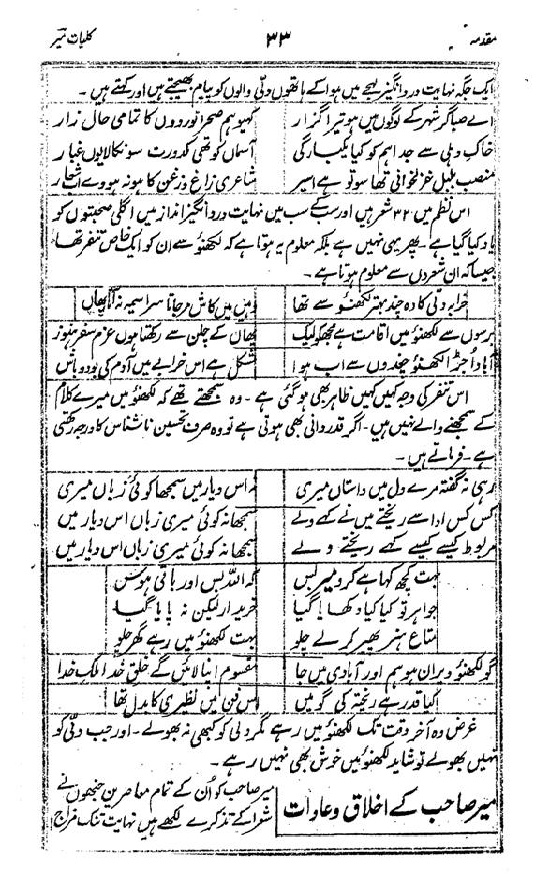 مقدمہ ۳۳ کلیات میر
ایک جگہ نہایت درد انگیز لہجے میں ہوا کے ہاتھوں دلّی والوں کو پیام بھیجتے ہیں اور کہتے ہیں۔
اے صبا گر شہر کے لوگوں میں ہو تیرا گزار کہیو ہم صحرا نوردوں کا تمامی حال زار
خاک دہلی سے جدا ہم کو کیا یکبارگی آسماں کو تھی کدورت سو نکالا یوں غبار
منصب بلبل غزلخوانی تھا سو تو ہے اسیر شاعری زاغ و زغن کا ہو نہ ہووے اشعار
اس نظم میں ۳۲ شعر ہیں اور سب کے سب میں نہایت درد انگیز انداز میں اگلی صحبتوں کو
یاد کیا گیا ہے۔ پھر یہی نہیں ہے بلکہ معلوم یہ ہوتا ہے کہ لکھنؤ سے ان کو ایک خاص تنفر تھا
جیسا کہ ان شعروں سے معلوم ہوتا ہے۔
خرابہ دلّی کا دہ چند بہتر لکھنؤ سے تھا وہیں میں کاش مرجاتا سراسیمہ نہ آتا یہاں
برسوں سے لکھنؤ میں اقامت ہے مجھکو لیک یھاں کے چلن سے رکھتا ہوں عزم سفر ہنوز
آباد اُجڑا لکھنؤ چندوں سے اب ہوا مشکل ہے اس خرابے میں آدم کی بود و باش
اس تنفر کی وجہ کہیں کہیں ظاہر بھی ہو گئی ہے۔ وہ سمجھتے تھے کہ لکھنؤ میں میرے کلام
کے سمجھنے والے نہیں ہیں۔ اگر قدردانی بھی ہوتی ہے تو وہ صرف تحسین ناشناس کا درجہ رکھتی
ہے۔ فرماتے ہیں۔
رہی نہ گفتہ مرے دل میں داستاں میری نہ اس دیار میں سمجھا کوئی زباں میری
کس کس ادا سے ریختے میں نے کہے ولے سمجھا نہ کوئی میری زباں اس دیار میں
مربوط کیسے کیسے کہے ریختے ولے سمجھا نہ کوئی میری زباں اس دیار میں
بہت کچھ کہا ہے کرو میر بس کہ اللہ بس اور باقی ہوس
جواہر تو کیا کیا دکھایا گیا خریدار لیکن نہ پایا گیا
متاع ہنر پھیر کر لے چلو بہت لکھنؤ میں رہے گھر چلو
گو لکھنؤ ویراں ہو ہم اور آبادی میں جا مقسوم اپنا لائیں گے خلق خدا ملک خدا
کیا قدر ہے ریختہ کی گو میں اس فن میں نظیری کا بدل تھا
غرض وہ آخر وقت تک لکھنؤ میں رہے مگر دلی کو کبھی نہ بھولے۔ اور جب دلّی کو
نہیں بھولے تو شاید لکھنؤ میں خوش بھی نہیں رہے۔
میر صاحب کے اخلاق و عادات
میر صاحب کو اُن کے تمام معاصرین جنھوں نے
شعرا کے تذکرے لکھے ہیں نہایت تنک مزاج